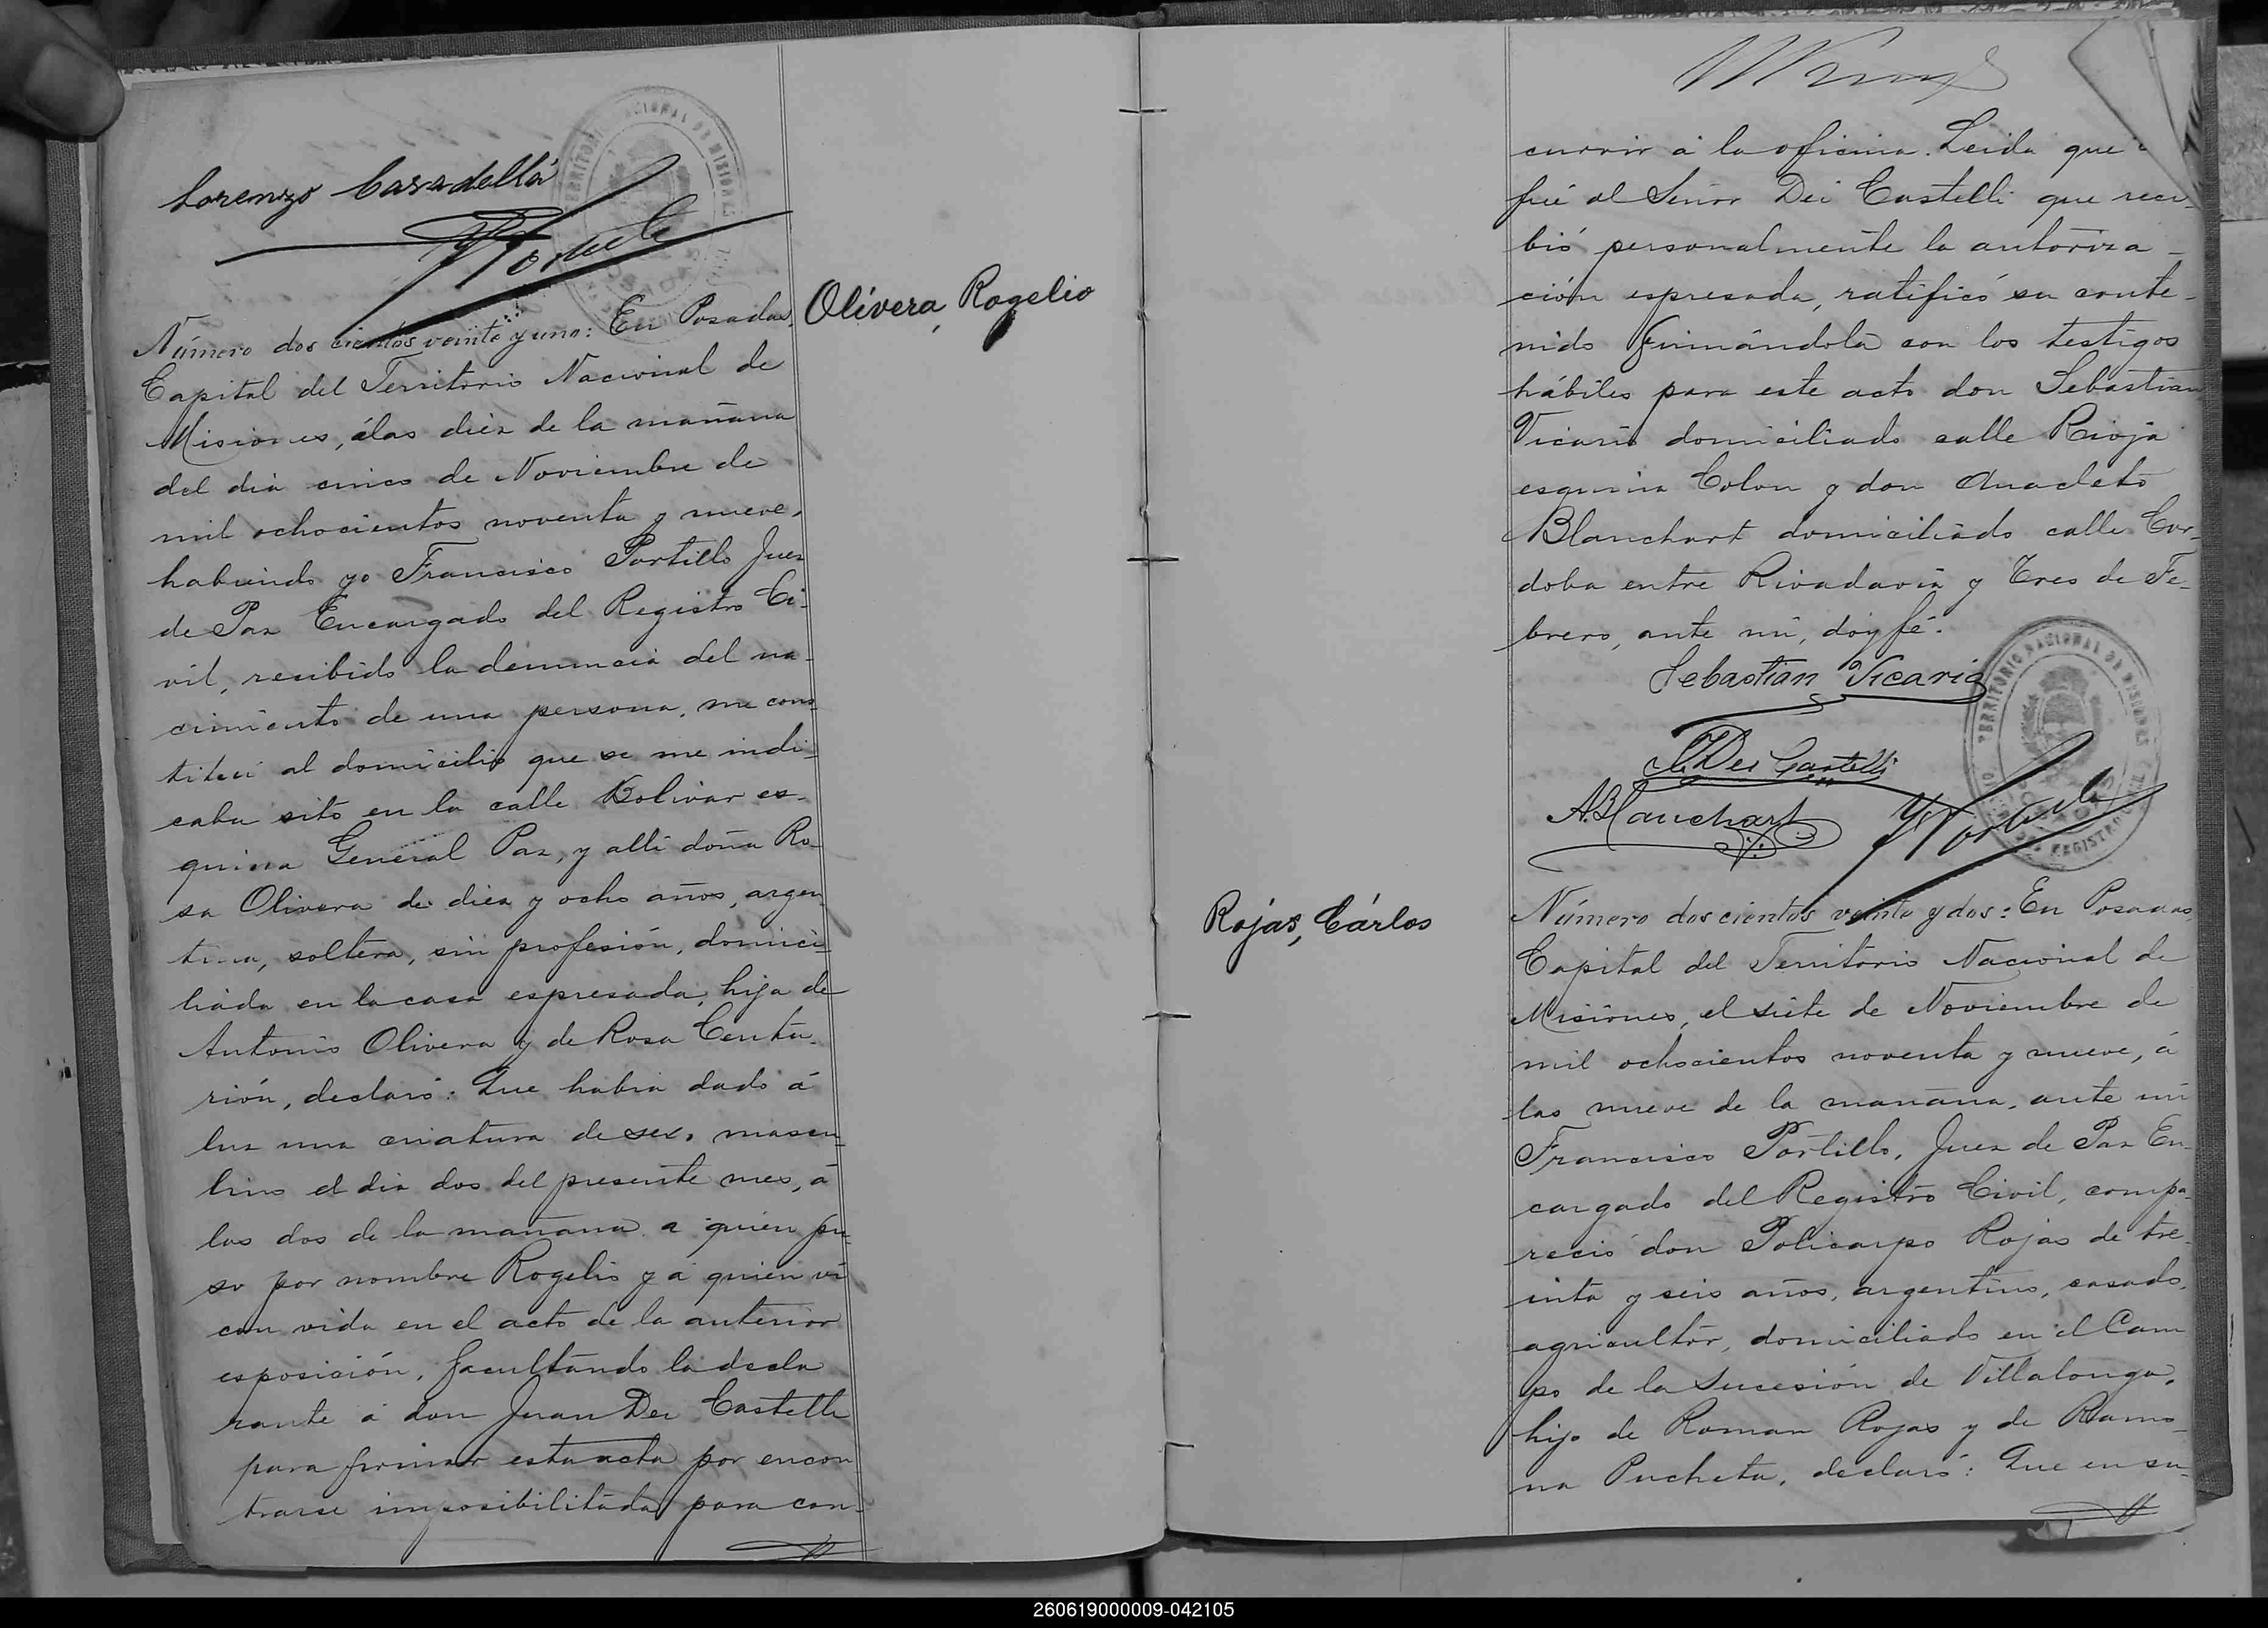 Lorenzo Casadellá
FPortillo
Olivera, Rogelio
Número dos cientos veinte y uno: En Posadas,
Capital del Territorio Nacional de
Misiones, álas diez de la mañana
del dia cinco de Noviembre de
mil ochocientos noventa y nueve,
habiendo yo Francisco Portillo Juez
de Paz Encargado del Registro Ci-
vil, recibido la denuncia del na-
cimiento de una persona, me cons
tituí al domicilio que se me indi-
caba sito en la calle Bolivar es-
quina General Paz, y allí doña Ro-
sa Olivera de diez y ocho años, argen
tina, soltera, sin profesión, domici-
liada en la casa espresada, hija de
Antonio Olivera y de Rosa Centu-
rión, declaró: Que habia dado á
luz una criatura de sexo mascu-
lino el dia dos del presente mes, á
las dos de la mañana a quien pu-
so por nombre Rogelio y á quien vi
con vida en el acto de la anterior
esposición, facultando la decla
rante á don Juan Dei Castelli
para firmar esta acta por encon
trarse imposibilitada para con-
currir á la oficina. Leida que
fué al Señor Dei Castelli que reci-
bió personalmente la autoriza-
ción espresada, ratificó su conte-
nido firmándola con los testigos
hábiles para este acto don Sebastian
Vicario domiciliado calle Rioja
esquina Colon y don Anacleto
Blanchart domiciliado calle Cor-
doba entre Rivadavia y Tres de Fe-
brero, ante mi, doy fé.
Sebastian Vicario
J. Dei Castelli
A. Blanchart
FPortillo
TERRITORIO NACIONAL DE MISIONES
REGISTRO CIVIL
Rojas, Cárlos
Número dos cientos veinte y dos: En Posadas,
Capital del Territorio Nacional de
Misiones, el siete de Noviembre de
mil ochocientos noventa y nueve, á
las nueve de la mañana, ante mi
Francisco Portillo, Juez de Paz En-
cargado del Registro Civil, compa-
reció don Policarpo Rojas de tre-
inta y seis años, argentino, casado,
agricultor, domiciliado en el Cam
po de la Sucesión de Villalonga,
hijo de Roman Rojas y de Ramo-
na Pucheta, declaró: Que en su-
260619000009-042105